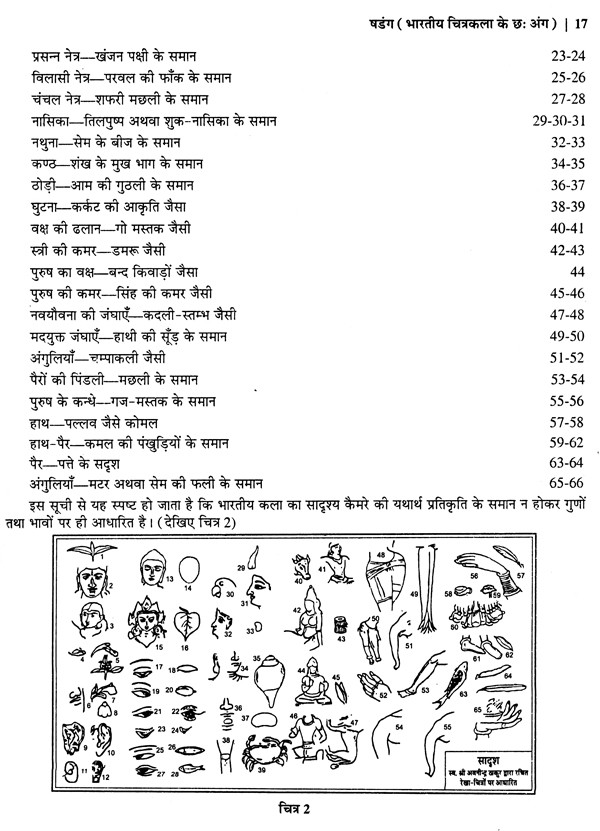 षडंग ( भारतीय चित्रकला के छः अंग ) | 17
प्रसन्न नेत्र—खंजन पक्षी के समान 23-24
विलासी नेत्र—परवल की फाँक के समान 25-26
चंचल नेत्र—शफरी मछली के समान 27-28
नासिका—तिलपुष्प अथवा शुक-नासिका के समान 29-30-31
नथुना—सेम के बीज के समान 32-33
कण्ठ—शंख के मुख भाग के समान 34-35
ठोड़ी—आम की गुठली के समान 36-37
घुटना—कर्कट की आकृति जैसा 38-39
वक्ष की ढलान—गो मस्तक जैसी 40-41
स्त्री की कमर—डमरू जैसी 42-43
पुरुष का वक्ष—बन्द किवाड़ों जैसा 44
पुरुष की कमर—सिंह की कमर जैसी 45-46
नवयौवना की जंघाएँ—कदली-स्तम्भ जैसी 47-48
मदयुक्त जंघाएँ—हाथी की सूँड़ के समान 49-50
अंगुलियाँ—चम्पाकली जैसी 51-52
पैरों की पिंडली—मछली के समान 53-54
पुरुष के कन्धे—गज-मस्तक के समान 55-56
हाथ—पल्लव जैसे कोमल 57-58
हाथ-पैर—कमल की पंखुड़ियों के समान 59-62
पैर—पत्ते के सदृश 63-64
अंगुलियाँ—मटर अथवा सेम की फली के समान 65-66
इस सूची से यह स्पष्ट हो जाता है कि भारतीय कला का सादृश्य कैमरे की यथार्थ प्रतिकृति के समान न होकर गुणों
तथा भावों पर ही आधारित है। (देखिए चित्र 2)
1 13 14 29 30 40 41 48 56 57
2 31 42 49 58 59
3 15 16 32 33 43 50 51 60
4 5 17 18 34 35 44 45 52 53 61 62
6 7 19 20 36 63 64
8 21 22 37 46 47 54 55 65
9 10 23 24 38 39
11 12 25 26 27 28
सादृश
स्व. श्री अवनीन्द्र ठाकुर द्वारा रचित
रेखा-चित्रों पर आधारित
चित्र 2